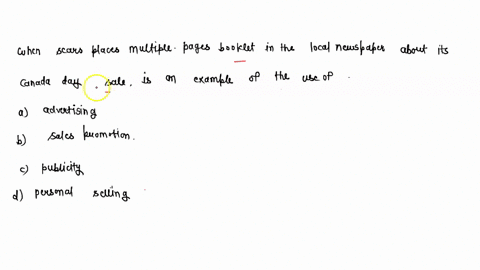 When scars places multiple pages booklet in the local newspaper about its
Canada day sale, is an example of the use of
a) advertising
b) sales promotion.
c) publicity
d) personal selling